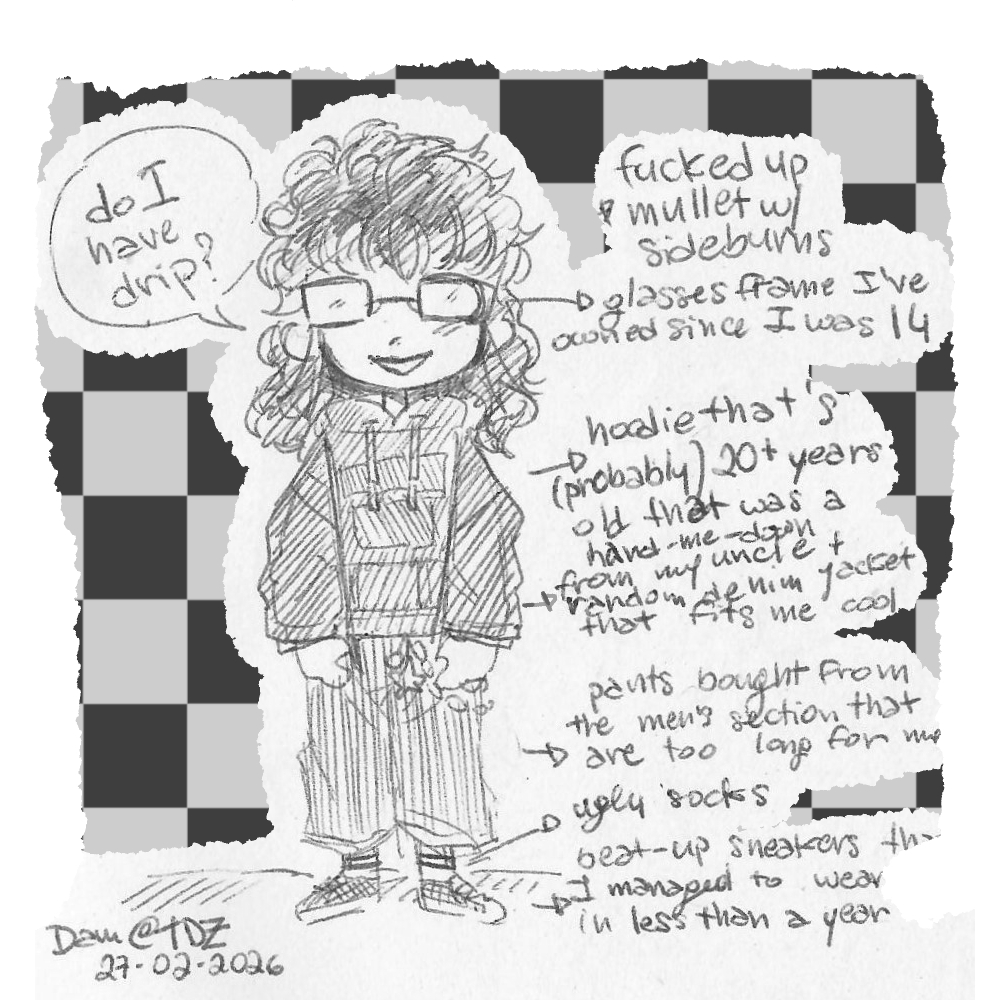 do I
have
drip?
fucked up
mullet w/
sideburns
glasses frame I've
owned since I was 14
hoodie that's
(probably) 20+ years
old that was a
hand-me-down
from my uncle +
random denim jacket
that fits me cool
pants bought from
the men's section that
are too long for me
ugly socks
beat-up sneakers tha
I managed to wear
in less than a year
Dam@tDZ
27-02-2026